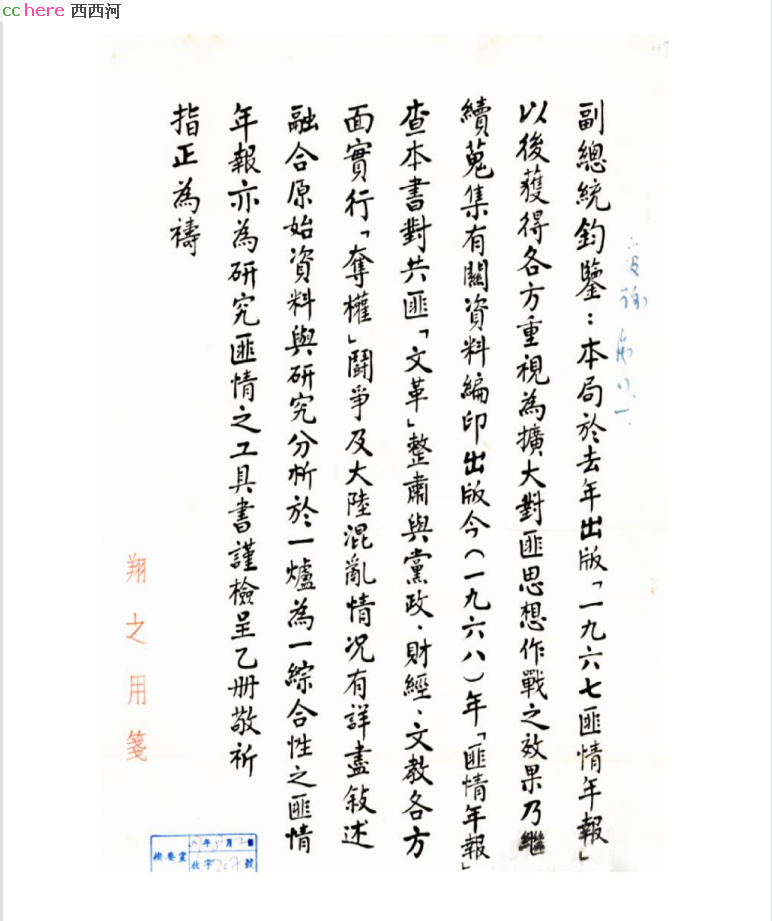 cchere 西西河
副總統鈞鑒：本局於去年出版「一九六七匪情年報」
以後獲得各方重視為擴大對匪思想作戰之效果乃繼
續蒐集有關資料編印出版今(一九六八)年「匪情年報」
查本書對共匪「文革」整肅與黨政、財經、文教各方
面實行「奪權」鬪爭及大陸混亂情况有詳盡敍述
融合原始資料與研究分析於一爐為一綜合性之匪情
年報亦為研究匪情之工具書謹檢呈乙册敬祈
指正為禱
翔之用箋
年 月
收字 號